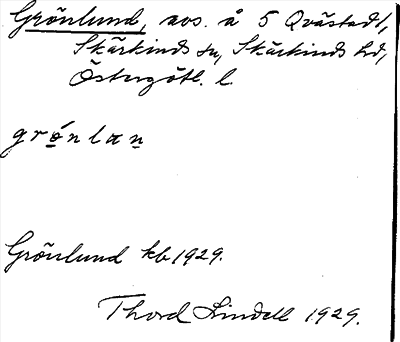 Grönlund, avs. å 5 Qvästad/,
Skärkinds sn, Skärkinds hd,
Östergötl. l
grǿnlan
Grönlund kb 1929.
Thord Lindell 1929.